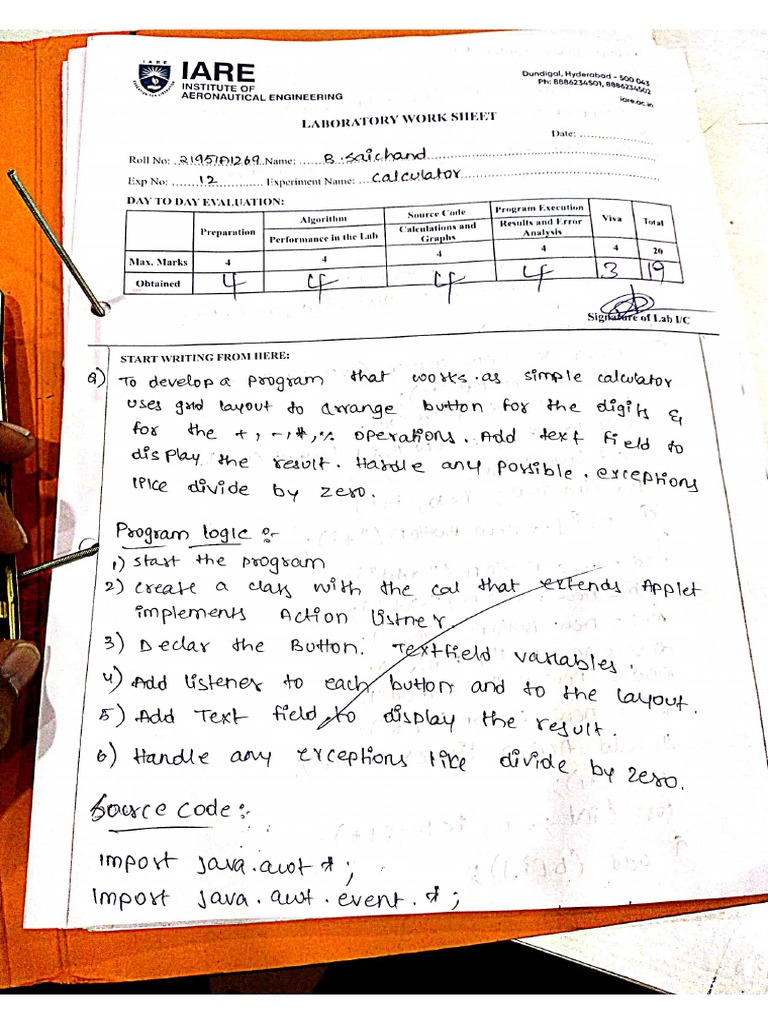 IARE
INSTITUTE OF
AERONAUTICAL ENGINEERING
Dundigal, Hyderabad - 500 043
Ph: 8886234501, 8886234502
iare.ac.in
LABORATORY WORK SHEET
Date: ....................
Roll No: 21951A1269 Name: B. Saichand
Exp No: 12 Experiment Name: Calculator
DAY TO DAY EVALUATION:
Preparation Algorithm Source Code Program Execution Viva Total
Performance in the Lab Calculations and Graphs Results and Error Analysis
Max. Marks 4 4 4 4 4 20
Obtained 4 4 4 4 3 19
Signature of Lab I/C
START WRITING FROM HERE:
Q) To develop a program that works. as simple calculator
uses grid layout to arrange button for the digits &
for the +, -, *, % operations. Add text field to
display the result. Handle any possible. exceptions
like divide by zero.
Program logic :-
1) start the program
2) create a class with the cal that extends Applet
implements Action Listner.
3) Declar the Button. Textfield variables.
4) Add listener to each button and to the layout.
5) Add Text field to display the result.
6) Handle any exceptions like divide by zero.
Source code :-
import java.awt *;
import java.awt.event.*;